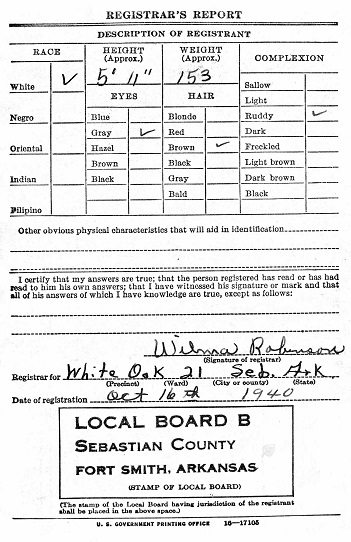 REGISTRAR'S REPORT
DESCRIPTION OF REGISTRANT
RACE
HEIGHT (Approx.)
WEIGHT (Approx.)
COMPLEXION
5' 11"
153
White ✓
EYES
HAIR
Sallow
Light
Negro
Blue
Blonde
Ruddy ✓
Gray ✓
Red
Dark
Oriental
Hazel
Brown ✓
Freckled
Brown
Black
Light brown
Indian
Black
Gray
Dark brown
Bald
Black
Filipino
Other obvious physical characteristics that will aid in identification
I certify that my answers are true; that the person registered has read or has had
read to him his own answers; that I have witnessed his signature or mark and that
all of his answers of which I have knowledge are true, except as follows:
Wilma Robinson
(Signature of registrar)
Registrar for White Oak 21 Seb. Ark
(Precinct) (Ward) (City or county) (State)
Date of registration Oct 16th 1940
LOCAL BOARD B
SEBASTIAN COUNTY
FORT SMITH, ARKANSAS
(STAMP OF LOCAL BOARD)
(The stamp of the Local Board having jurisdiction of the registrant
shall be placed in the above space.)
U. S. GOVERNMENT PRINTING OFFICE 16—17105